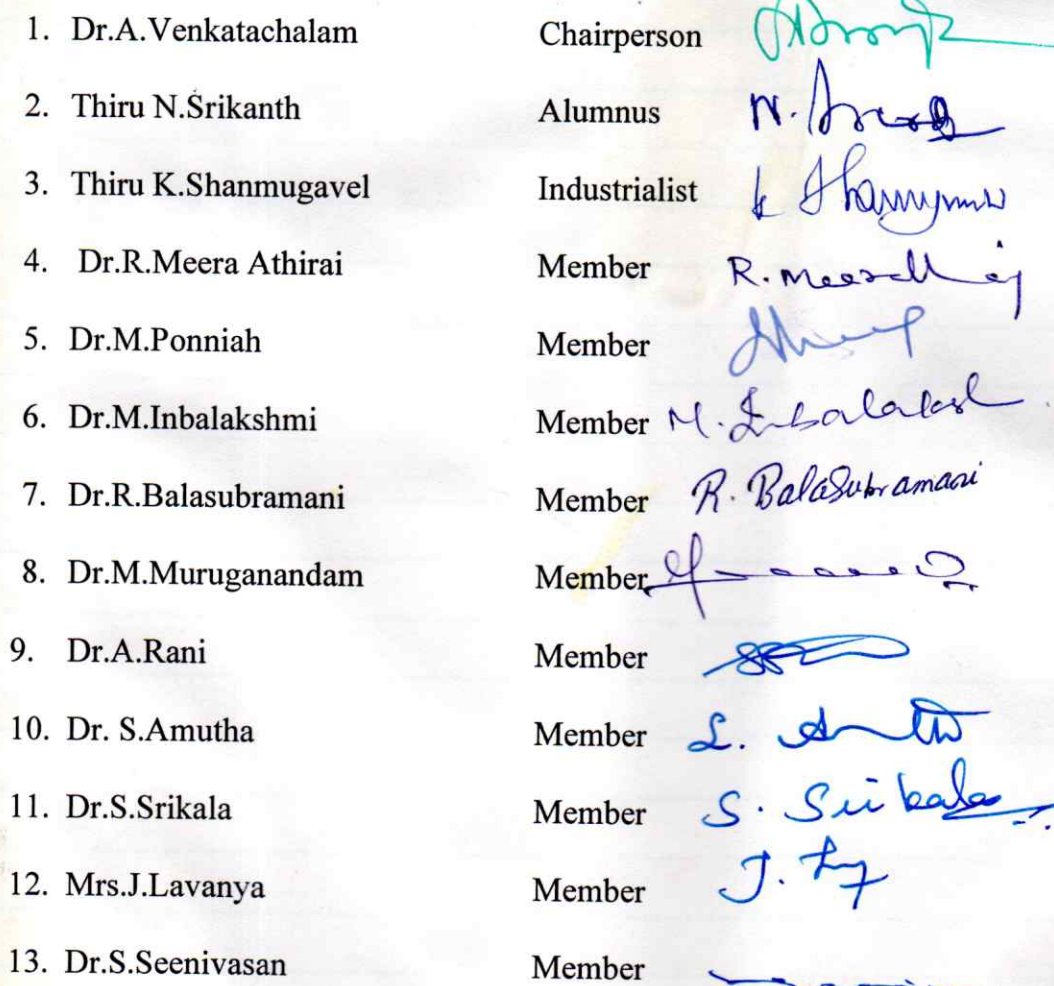 1. Dr.A.Venkatachalam Chairperson
2. Thiru N.Srikanth Alumnus N.
3. Thiru K.Shanmugavel Industrialist k
4. Dr.R.Meera Athirai Member R.
5. Dr.M.Ponniah Member
6. Dr.M.Inbalakshmi Member M.
7. Dr.R.Balasubramani Member R. Balasubramani
8. Dr.M.Muruganandam Member
9. Dr.A.Rani Member
10. Dr. S.Amutha Member S.
11. Dr.S.Srikala Member S. Srikala
12. Mrs.J.Lavanya Member J.
13. Dr.S.Seenivasan Member